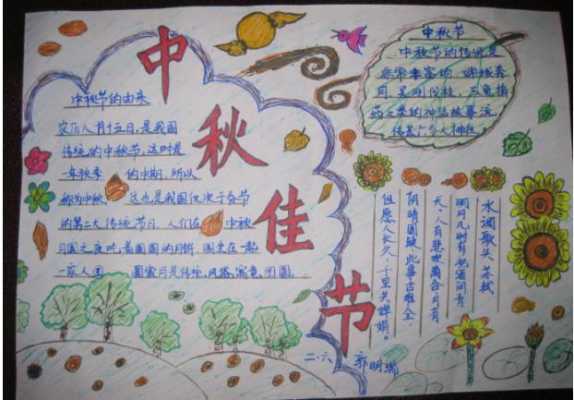 中秋佳节
中秋节的由来
农历八月十五日,是我国
传统的中秋节,这时是
一年秋季 的中期,所以
称为中秋 这也是我国仅次于春节
的第二大传统节日,人们在 中秋
一家人团 圆
中秋节
中秋节的传说是
非常丰富的,嫦娥奔
月,吴刚伐桂,玉兔捣
药之类的神话故事流
传甚广
水调歌头 苏轼
明月几时有 把酒问青
天,人有悲欢离合,月有
阴晴圆缺,此事古难全,
但愿人长久,千里共婵娟。
二·六 郭明